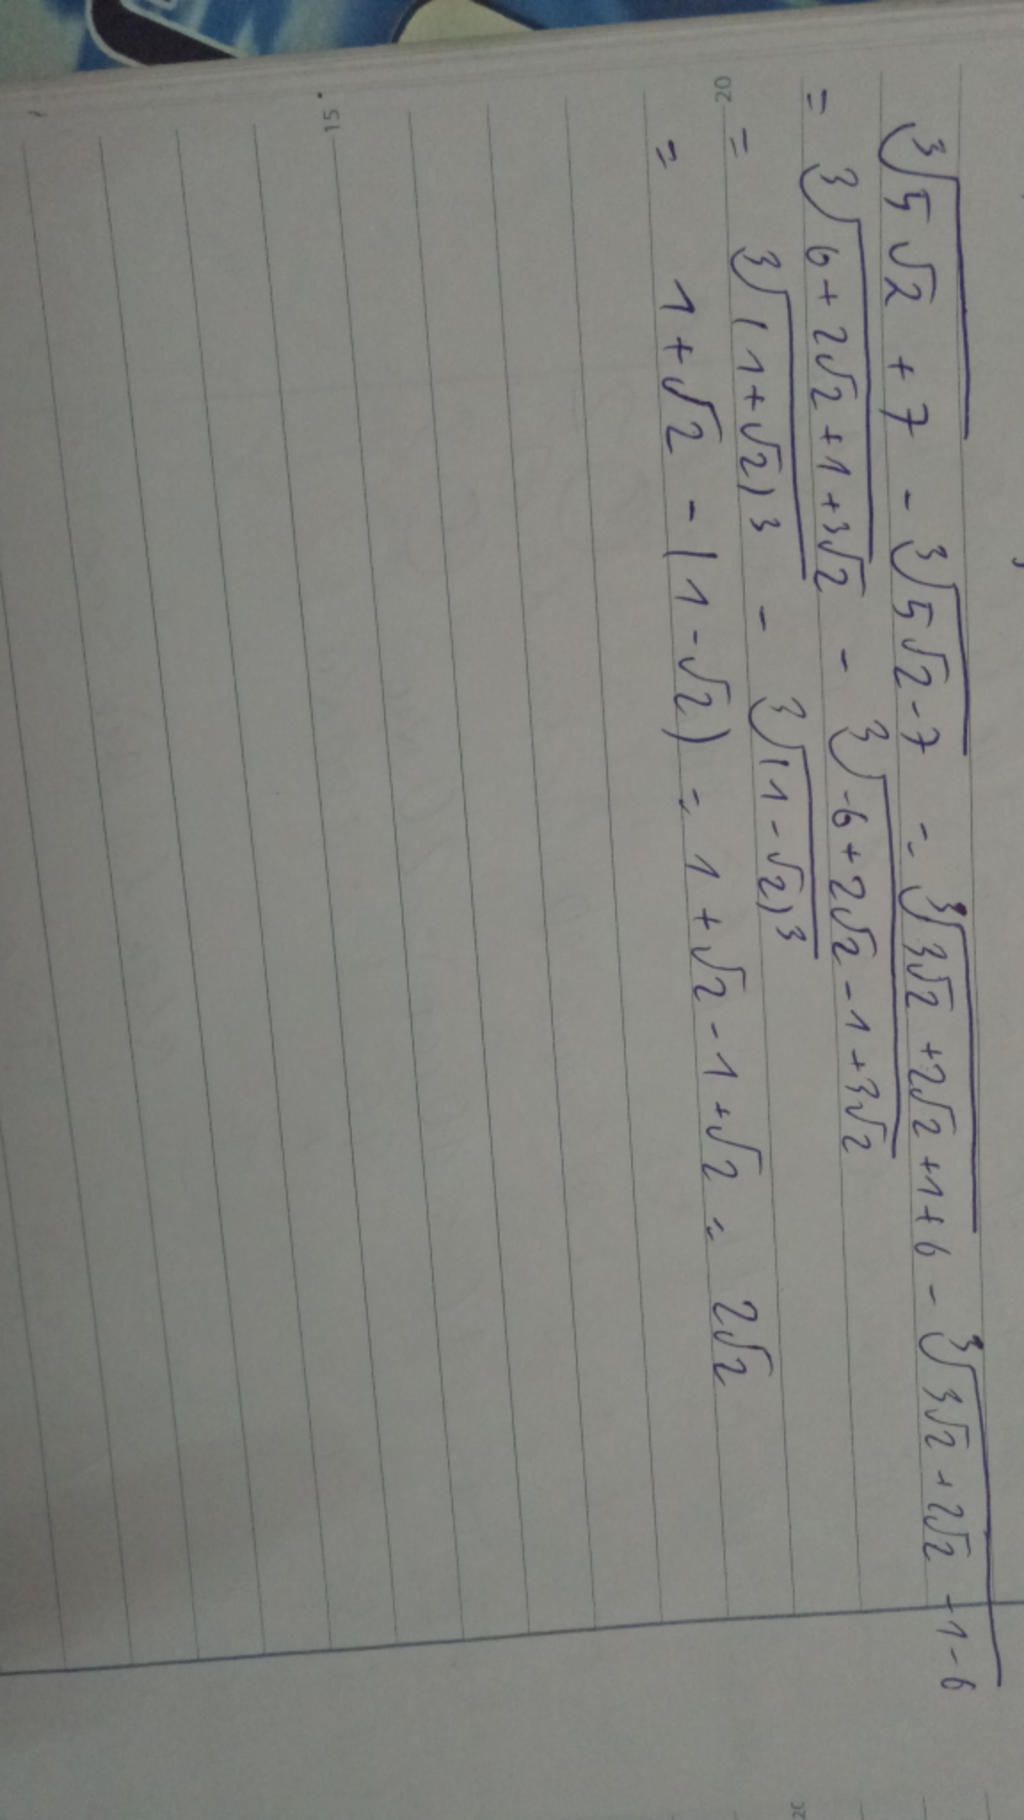 ∛(5√2 + 7) - ∛(5√2 - 7) = ∛(3√2 + 2√2 + 1 + 6) - ∛(3√2 + 2√2 - 1 - 6)
= ∛(6 + 2√2 + 1 + 3√2) - ∛(-6 + 2√2 - 1 + 3√2)
= ∛((1 + √2)³) - ∛((1 - √2)³)
= 1 + √2 - (1 - √2) = 1 + √2 - 1 + √2 = 2√2
20
15
20